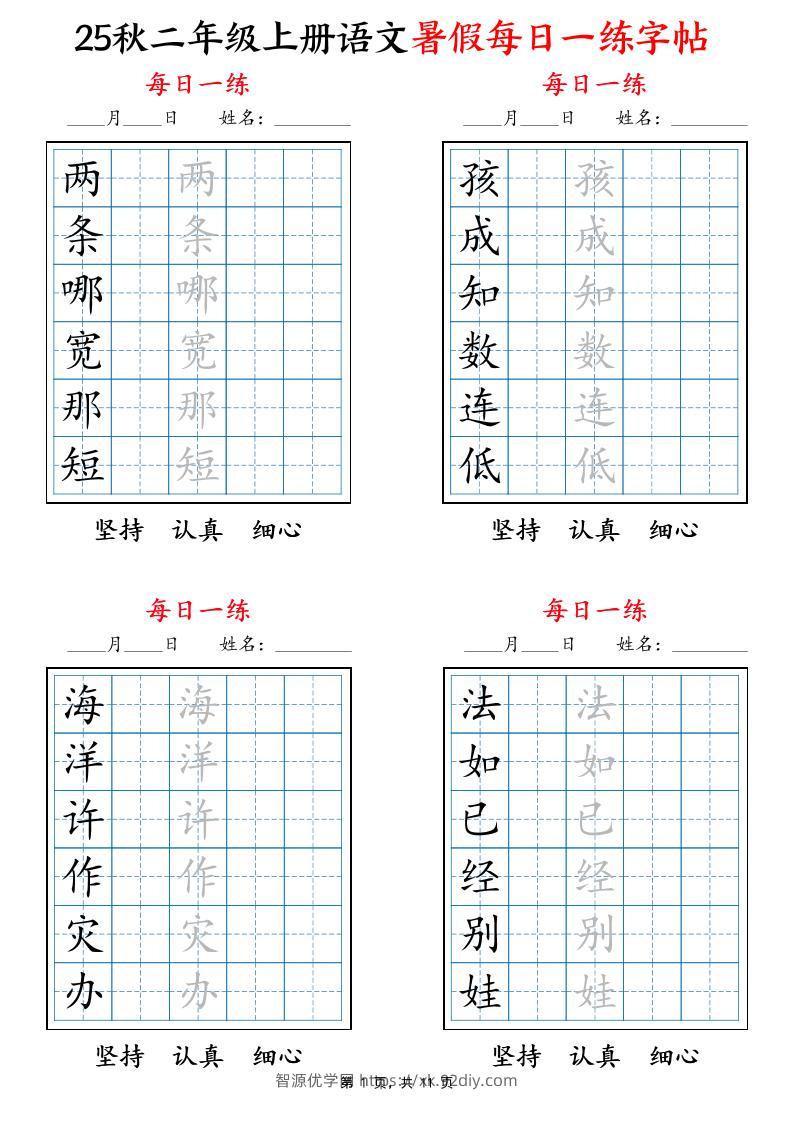 25秋二年级上册语文暑假每日一练字帖
每日一练
____月____日 姓名：________
两 两
条 条
哪 哪
宽 宽
那 那
短 短
坚持 认真 细心
每日一练
____月____日 姓名：________
孩 孩
成 成
知 知
数 数
连 连
低 低
坚持 认真 细心
每日一练
____月____日 姓名：________
海 海
洋 洋
许 许
作 作
灾 灾
办 办
坚持 认真 细心
每日一练
____月____日 姓名：________
法 法
如 如
已 已
经 经
别 别
娃 娃
坚持 认真 细心
智源优学网 https://xk.92diy.com
第 1 页，共 11 页